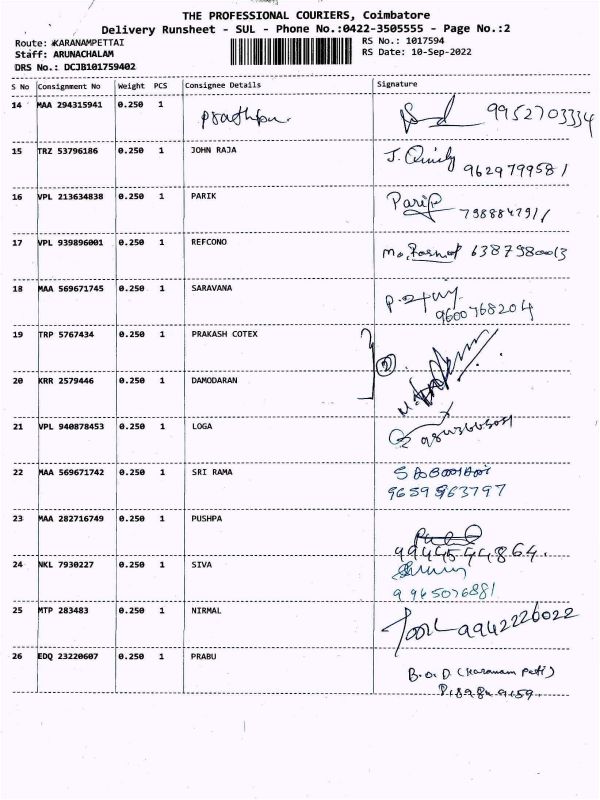 THE PROFESSIONAL COURIERS, Coimbatore
Delivery Runsheet - SUL - Phone No.:0422-3505555 - Page No.:2
Route: KARANAMPETTAI
RS No.: 1017594
Staff: ARUNACHALAM
RS Date: 10-Sep-2022
DRS No.: DCJB101759402
S No Consignment No Weight PCS Consignee Details Signature
14 MAA 294315941 0.250 1 9952703334
15 TRZ 53796186 0.250 1 JOHN RAJA
9629799581
16 VPL 213634838 0.250 1 PARIK
17 VPL 939896001 0.250 1 REFCONO 6387980013
18 MAA 569671745 0.250 1 SARAVANA
9600768204
19 TRP 5767434 0.250 1 PRAKASH COTEX
2
20 KRR 2579446 0.250 1 DAMODARAN
21 VPL 940878453 0.250 1 LOGA
22 MAA 569671742 0.250 1 SRI RAMA
9659563797
23 MAA 282716749 0.250 1 PUSHPA
9944544864.
24 NKL 7930227 0.250 1 SIVA
9965076881
25 MTP 283483 0.250 1 NIRMAL 9942226022
26 EDQ 23220607 0.250 1 PRABU
B.O.D (Karanam Peti)